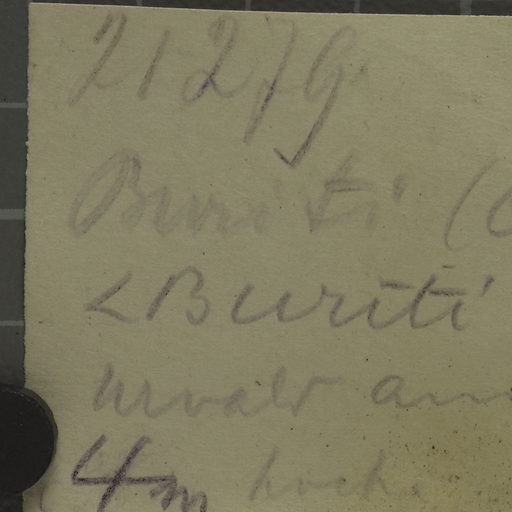 21279
Buriti (
< Buriti
Urwald am
4m hoch